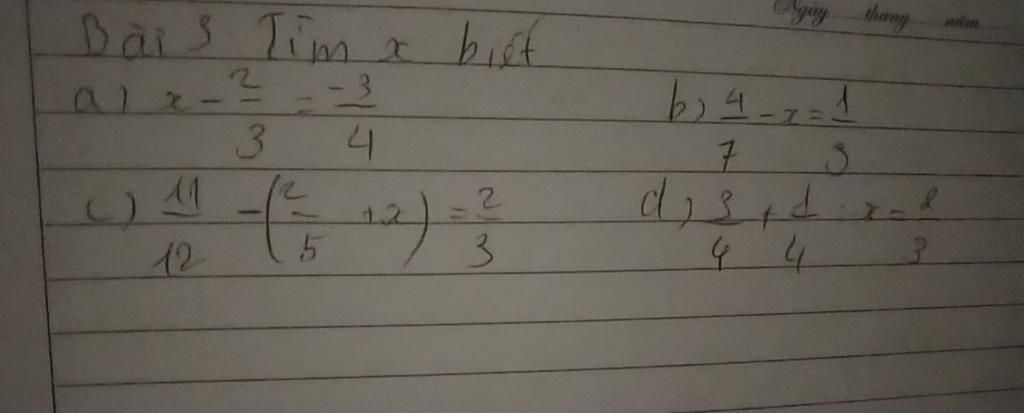 Ngày tháng năm
Bài 3 Tìm x biết
a) x - 2/3 = -3/4 b) 4/7 - x = 1/3
c) 11/12 - (2/5 + x) = 2/3 d) 3/4 + 1/4 . x = 2/3